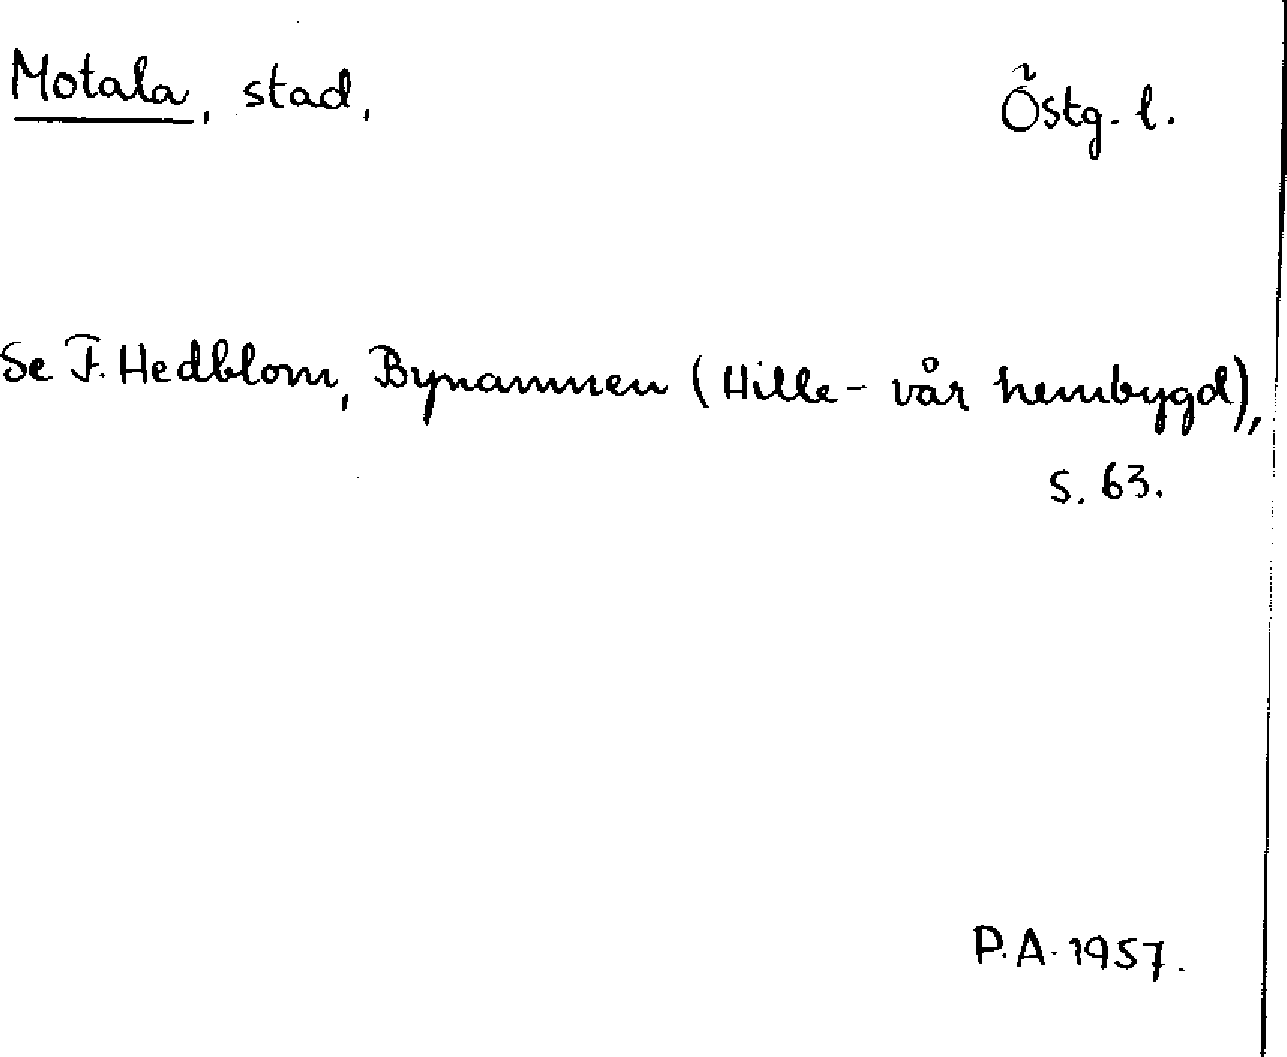 Motala, stad, Östg. l.
Se F. Hedblom, Bynamnen (Hille - vår hembygd),
s. 63.
P.A. 1957.